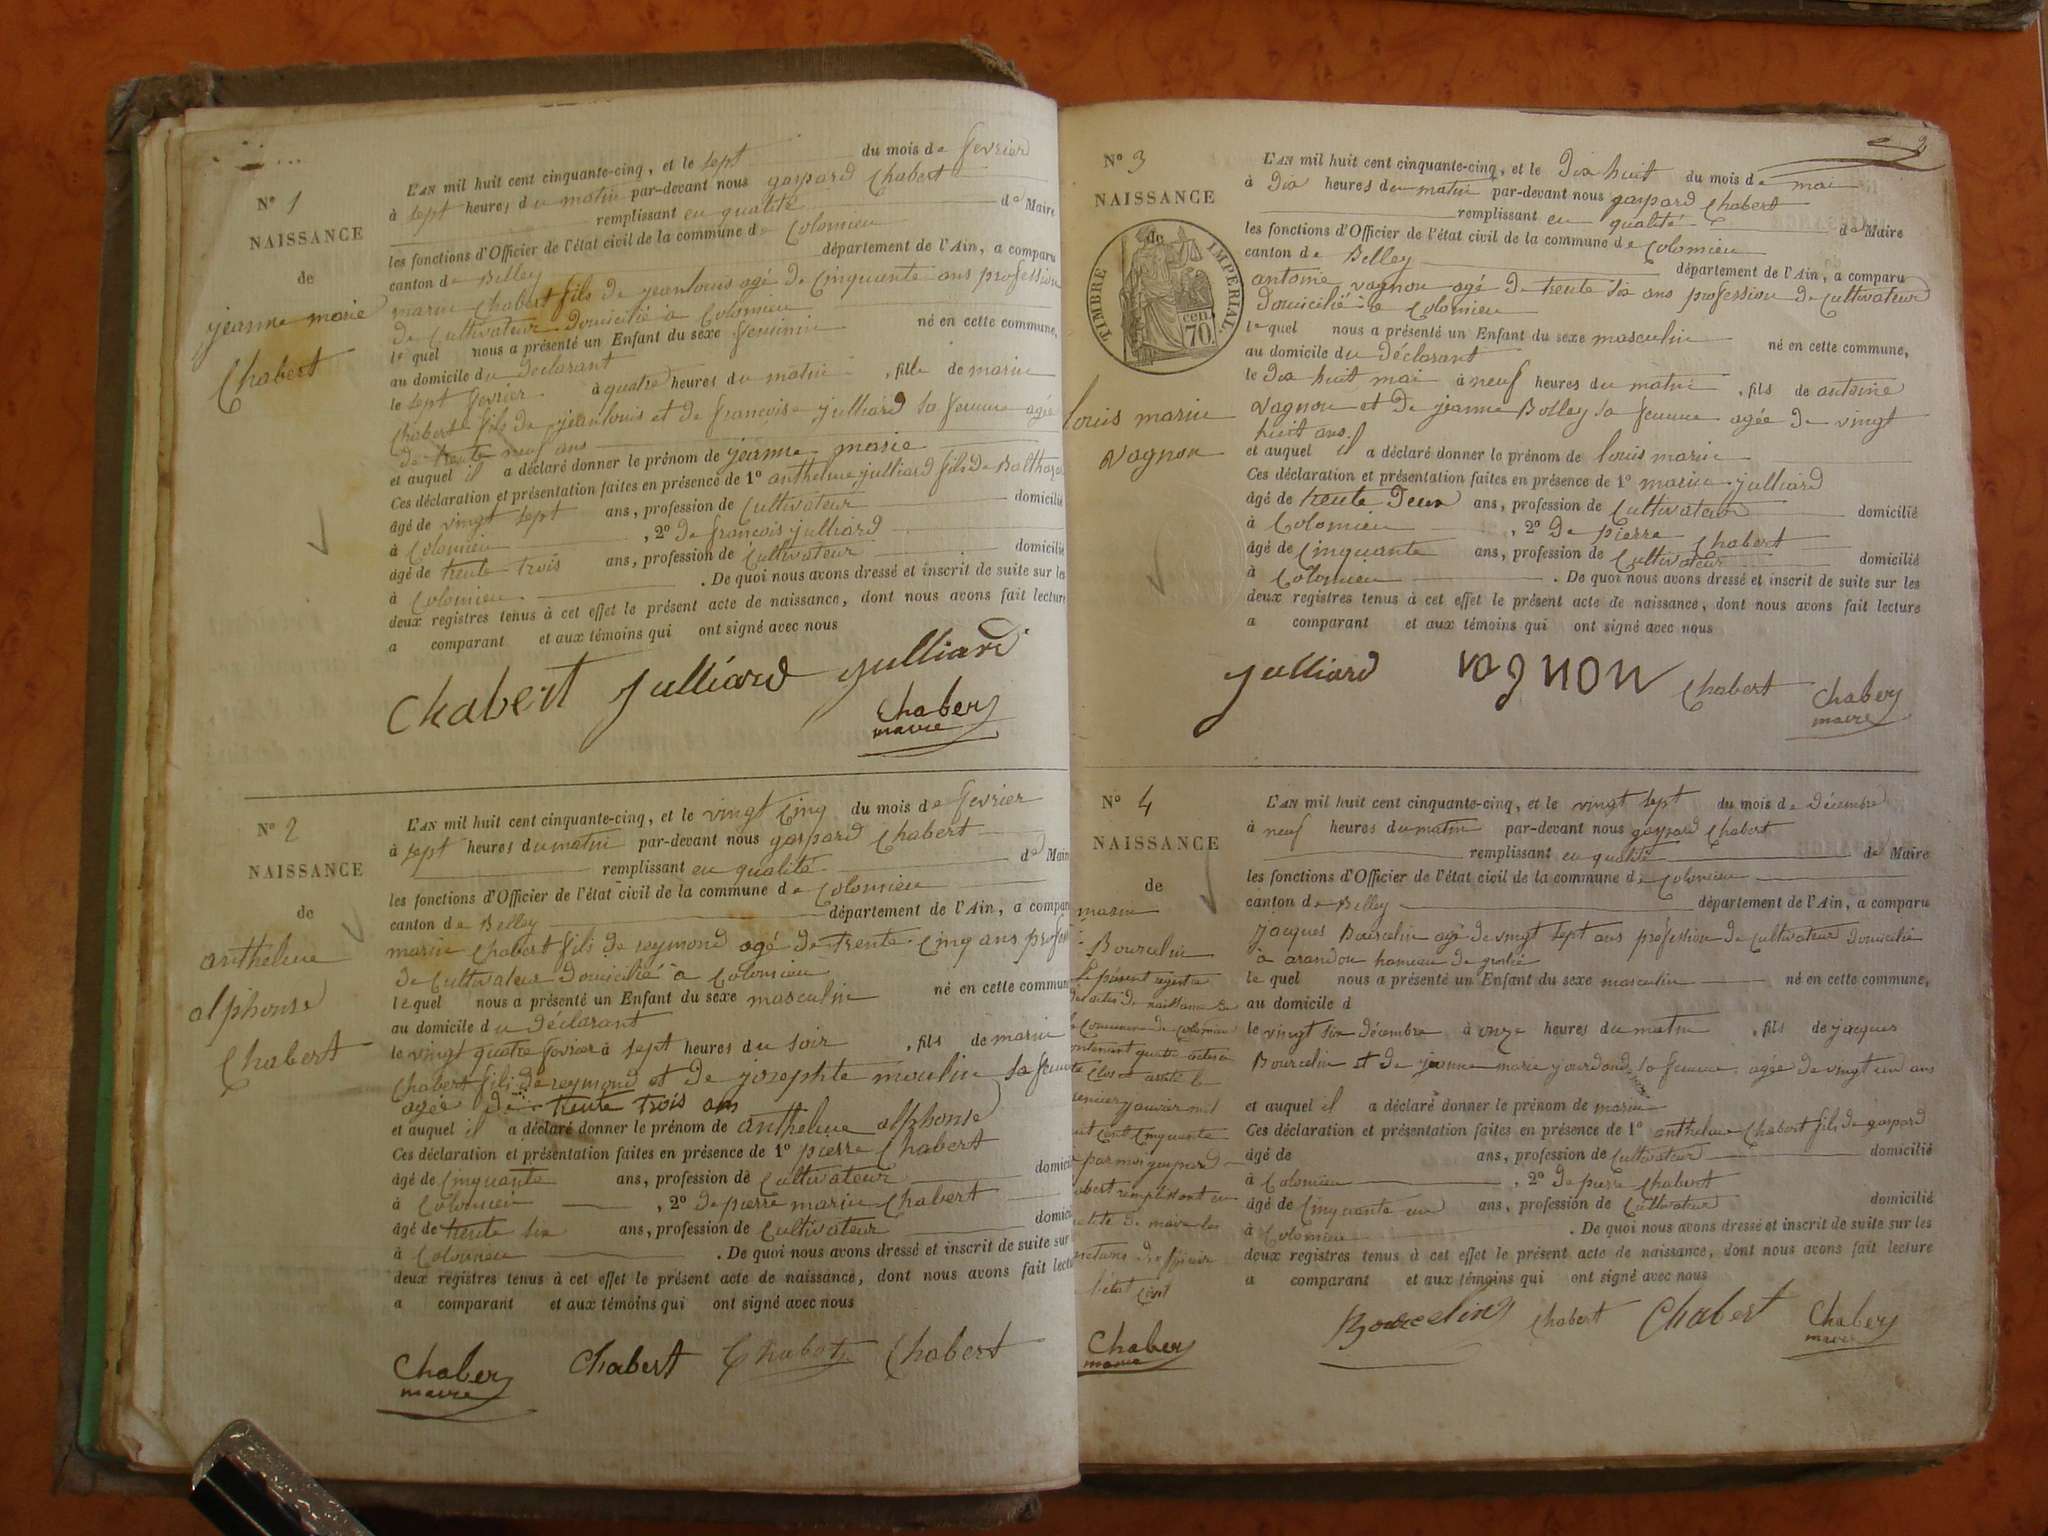 N° 1
NAISSANCE
de
jeanne marie
Chabert
L'AN mil huit cent cinquante-cinq, et le sept du mois de fevrier
à sept heures du matin par-devant nous gaspard Chabert
remplissant en qualité de Maire
les fonctions d'Officier de l'état civil de la commune de Colomieu
canton de Belley département de l'Ain, a comparu
marin Chabert fils de jeanlouis agé de Cinquante ans profession
de Cultivateur domicilié à Colomieu
le quel nous a présenté un Enfant du sexe feminin né en cette commune,
au domicile du déclarant
le sept fevrier à quatre heures du matin , fille de marin
Chabert fils de jeanlouis et de francoise julliard sa femme agée
de trente neuf ans
et auquel il a déclaré donner le prénom de jeanne marie
Ces déclaration et présentation faites en présence de 1° anthelme julliard fils de Balthazar
âgé de vingt sept ans, profession de Cultivateur domicilié
à Colomieu , 2° de francois julliard
âgé de trente trois ans, profession de Cultivateur domicilié
à Colomieu . De quoi nous avons dressé et inscrit de suite sur les
deux registres tenus à cet effet le présent acte de naissance, dont nous avons fait lecture
a comparant et aux témoins qui ont signé avec nous
Chabert julliard julliard
Chaber
maire
N° 2
NAISSANCE
de
anthelme
alphonse
Chabert
L'AN mil huit cent cinquante-cinq, et le vingt Cinq du mois de fevrier
à sept heures du matin par-devant nous gaspard Chabert
remplissant en qualité de Mair
les fonctions d'Officier de l'état civil de la commune de Colomieu
canton de Belley département de l'Ain, a compar
marin Chabert fils de reymond agé de trente Cinq ans profess
de Cultivateur domicilié à Colomieu
le quel nous a présenté un Enfant du sexe masculin né en cette commun
au domicile du déclarant
le vingt quatre fevrier à sept heures du soir , fils de marin
Chabert fils de reymond et de josephte moulin sa femme
agée de trente trois ans
et auquel il a déclaré donner le prénom de anthelme alphonse
Ces déclaration et présentation faites en présence de 1° pierre Chabert
âgé de Cinquante ans, profession de Cultivateur domici
à Colomieu , 2° de pierre marin Chabert
âgé de trente six ans, profession de Cultivateur domici
à Colomieu . De quoi nous avons dressé et inscrit de suite sur
deux registres tenus à cet effet le présent acte de naissance, dont nous avons fait lectu
a comparant et aux témoins qui ont signé avec nous
Chaber Chabert Chabert Chabert
maire
3
N° 3
NAISSANCE
de
TIMBRE IMPERIAL
cen.
70.
louis marin
vagnon
L'AN mil huit cent cinquante-cinq, et le dix huit du mois de mai
à dix heures du matin par-devant nous gaspard Chabert
remplissant en qualité de Maire
les fonctions d'Officier de l'état civil de la commune de Colomieu
canton de Belley département de l'Ain, a comparu
antoine vagnon agé de trente six ans profession de Cultivateur
domicilié à Colomieu
le quel nous a présenté un Enfant du sexe masculin né en cette commune,
au domicile du déclarant
le dix huit mai à neuf heures du matin , fils de antoine
vagnon et de jeanne Bolley sa femme agée de vingt
huit ans
et auquel il a déclaré donner le prénom de louis marin
Ces déclaration et présentation faites en présence de 1° marin julliard
âgé de trente deux ans, profession de Cultivateur domicilié
à Colomieu , 2° de pierre Chabert
âgé de Cinquante ans, profession de Cultivateur domicilié
à Colomieu . De quoi nous avons dressé et inscrit de suite sur les
deux registres tenus à cet effet le présent acte de naissance, dont nous avons fait lecture
a comparant et aux témoins qui ont signé avec nous
julliard vagnon Chabert Chaber
maire
N° 4
NAISSANCE
de
marin
Bourcelin
Le présent registre
des actes de naissance de
la Commune de Colomieu
contenant quatre actes a
été Clos et arrêté le
premier janvier mil
huit cent Cinquante
par moi gaspard
Chabert remplissant en
qualité de maire les
fonctions d'officier
l'état Civil
Chaber
maire
L'AN mil huit cent cinquante-cinq, et le vingt sept du mois de décembre
à neuf heures du matin par-devant nous gaspard Chabert
remplissant en qualité de Maire
les fonctions d'Officier de l'état civil de la commune de Colomieu
canton de Belley département de l'Ain, a comparu
jacques Bourcelin agé de vingt sept ans profession de Cultivateur domicilié
à arandon hameau de
le quel nous a présenté un Enfant du sexe masculin né en cette commune,
au domicile d
le vingt six décembre à onze heures du matin , fils de jacques
Bourcelin et de jeanne marie jourdand sa femme agée de vingt un ans
et auquel il a déclaré donner le prénom de marin
Ces déclaration et présentation faites en présence de 1° anthelme Chabert fils de gaspard
âgé de ans, profession de Cultivateur domicilié
à Colomieu , 2° de pierre Chabert
âgé de Cinquante un ans, profession de Cultivateur domicilié
à Colomieu . De quoi nous avons dressé et inscrit de suite sur les
deux registres tenus à cet effet le présent acte de naissance, dont nous avons fait lecture
a comparant et aux témoins qui ont signé avec nous
Bourcelin Chabert Chabert Chaber
maire